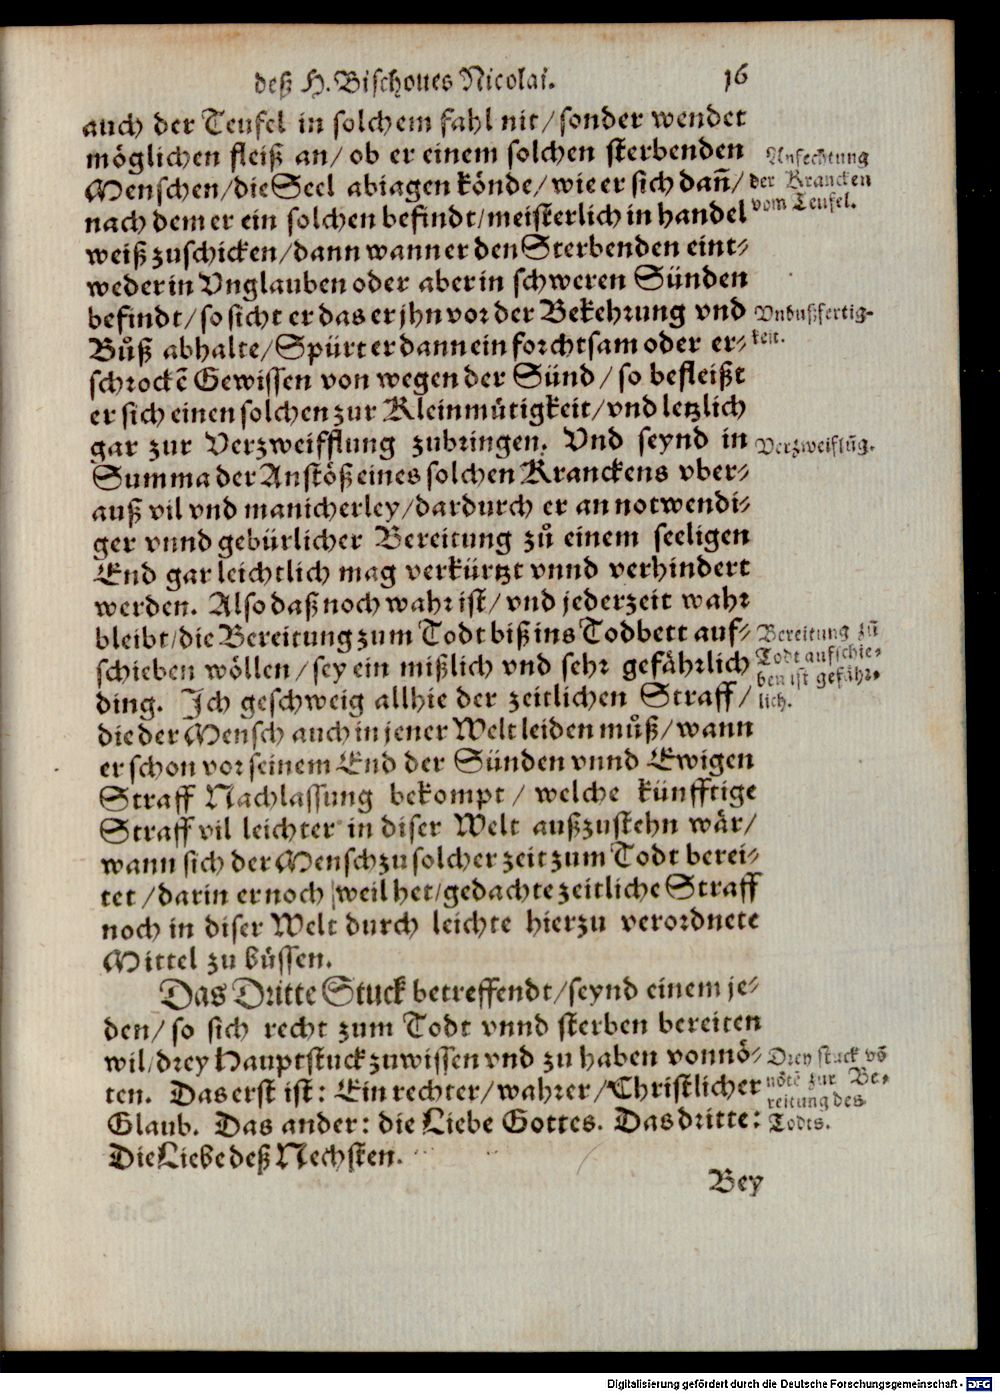 deß H. Bischoues Nicolai.
16
auch der Teufel in solchem fahl nit/ sonder wendet
möglichen fleiß an/ ob er einem solchen sterbenden
Menschen/ die Seel abiagen könde/ wie er sich dañ/
nach dem er ein solchen befindt/ meisterlich in handel
weiß zuschicken/ dann wann er den Sterbenden eint-
weder in Vnglauben oder aber in schweren Sünden
befindt/ so sicht er das er jhn vor der Bekehrung vnd
Bůß abhalte/ Spürt er dann ein forchtsam oder er-
schrockē Gewissen von wegen der Sünd/ so befleißt
er sich einen solchen zur Kleinmütigkeit/ vnd letzlich
gar zur Verzweifflung zubringen. Vnd seynd in
Summa der Anstöß eines solchen Kranckens vber-
auß vil vnd manicherley/ dardurch er an notwendi-
ger vnnd gebürlicher Bereitung zů einem seeligen
End gar leichtlich mag verkürtzt vnnd verhindert
werden. Also daß noch wahr ist/ vnd jederzeit wahr
bleibt/ die Bereitung zum Todt biß ins Todbett auf-
schieben wöllen/ sey ein mißlich vnd sehr gefährlich
ding. Ich geschweig allhie der zeitlichen Straff/
die der Mensch auch in jener Welt leiden můß/ wann
er schon vor seinem End der Sünden vnnd Ewigen
Straff Nachlassung bekompt/ welche künfftige
Straff vil leichter in diser Welt außzustehn wär/
wann sich der Mensch zu solcher zeit zum Todt berei-
tet/ darin er noch weil het/ gedachte zeitliche Straff
noch in diser Welt durch leichte hierzu verordnete
Mittel zu büssen.
Das Dritte Stuck betreffendt/ seynd einem je-
den/ so sich recht zum Todt vnnd sterben bereiten
wil/ drey Hauptstuck zuwissen vnd zu haben vonnö-
ten. Das erst ist: Ein rechter/ wahrer/ Christlicher
Glaub. Das ander: die Liebe Gottes. Das dritte:
Die Liebe deß Nechsten.
Bey
Anfechtung
der Krancken
vom Teufel.
Vnbußfertig-
keit.
Verzweiflũg.
Bereitung zũ
Todt aufschie-
ben ist gefähr-
lich.
Drey stuck võ
nötē zur Be-
reitung des
Todts.
Digitalisierung gefördert durch die Deutsche Forschungsgemeinschaft - DFG